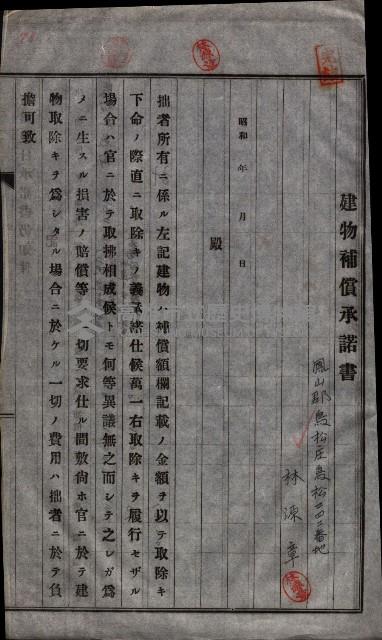 建物補償承諾書
鳳山郡鳥松庄鳥松二四二番地
林深章
昭和　年　月　日
殿
拙者所有ニ係ル左記建物ハ補償額欄記載ノ金額ヲ以テ取除キ
下命ノ際直ニ取除キノ義承諾仕候萬一右取除キヲ履行セザル
場合ハ官ニ於テ取拂相成候トモ何等異議無之而シテ之レガ爲
メニ生スル損害ノ賠償等一切要求仕ル間敷尙ホ官ニ於テ建
物取除キヲ爲シタル場合ニ於ケル一切ノ費用ハ拙者ニ於テ負
擔可致